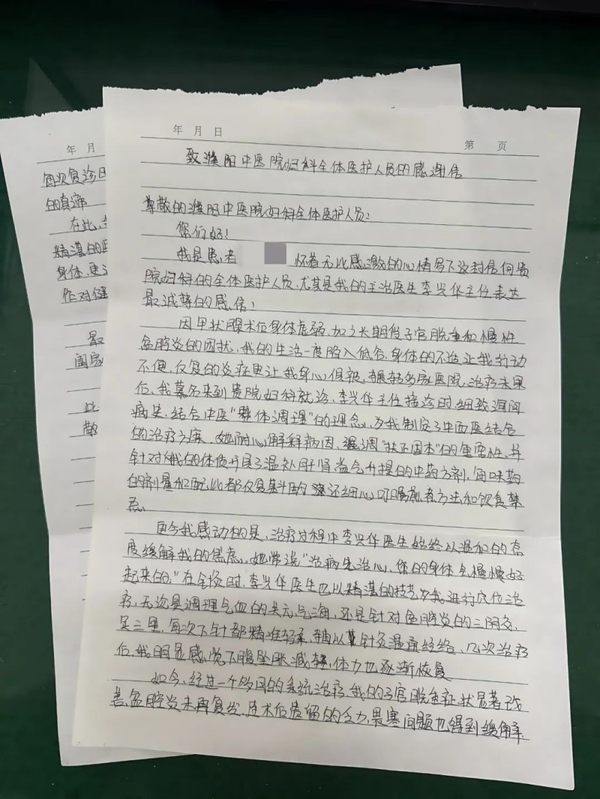 年 月 日
第 页
致濮阳中医院妇科全体医护人员的感谢信
尊敬的濮阳中医院妇科全体医护人员:
您们好!
我是患者 怀着无比感激的心情写下这封信向贵
院妇科的全体医护人员,尤其是我的主治医生李兴华主任表达
最诚挚的感信!
因甲状腺术后身体虚弱,加之长期受子宫脱垂和慢性
盆腔炎的困扰,我的生活一度陷入低谷,身体的不适让我行动
不便,反复的炎症更让我身心俱疲,辗转多家医院,治疗未果
后,我慕名来到贵院妇科就诊,李兴华主任接诊时细致询问
病史,结合中医“整体调理”的理念,为我制定了中西医结合
的治疗方案。她耐心解释病因,强调“扶正固本”的重要性,并
针对我的体质开展了温补肝肾益气升提的中药方剂,每味药
的剂量和配比都反复斟酌,还细心叮嘱煎煮方法和饮食禁
忌。
更令我感动的是,治疗过程中李兴华医生始终以温和的态
度缓解我的焦虑,她常说“治病先治心,您的身体会慢慢好
起来的。”在针灸时,李兴华医生也以精湛的技艺为我进行穴位治
疗,无论是调理气血的关元气海,还是针对盆腔炎的三阴交
足三里,每次下针都精准轻柔,辅以针灸温通经络,几次治疗
后,我明显感觉下腹坠胀减轻,体力也逐渐恢复
如今,经过一个多月的系统治疗,我的子宫脱垂症状显著改
善,盆腔炎未再复发,且术后遗留的乏力、畏寒问题也得到缓解
年 月
每次复诊
的真谛
在此,
精湛的医
身体,更
作对健
最
阖家
此
敬